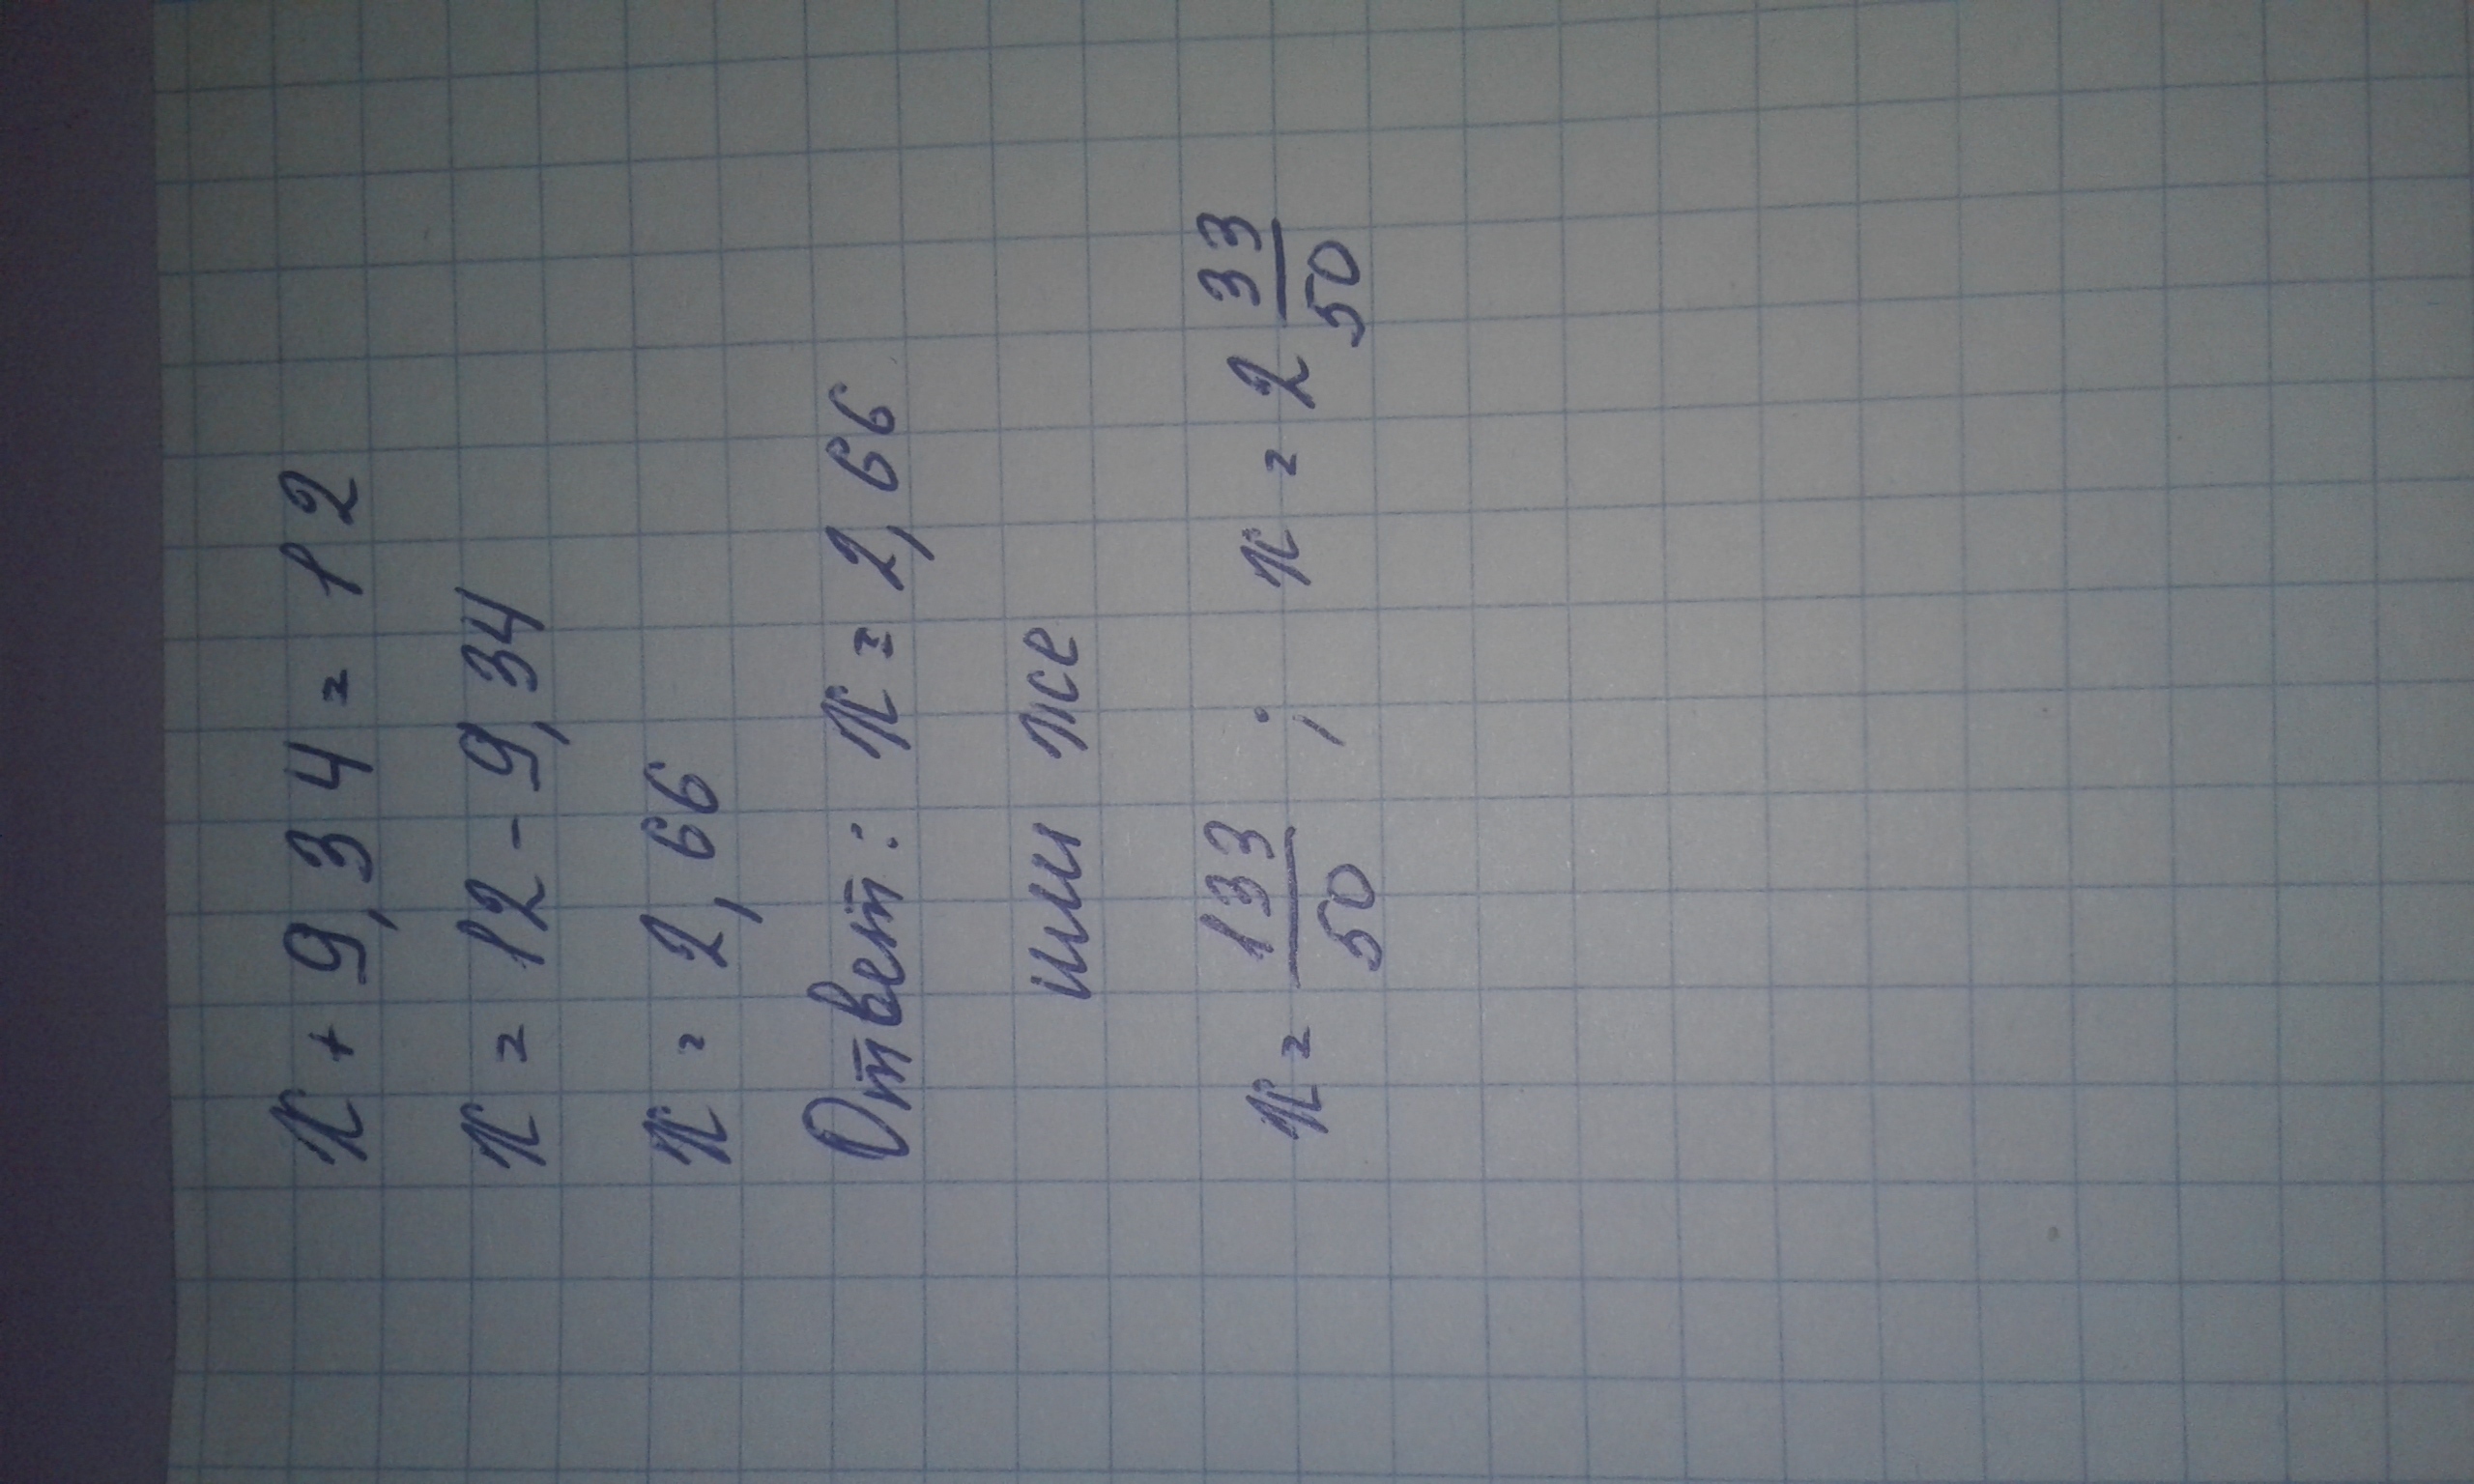 n + 9,34 = 12
n = 12 - 9,34
n = 2,66
Ответ: n = 2,66
или же
n = 133/50 ; n = 2 33/50